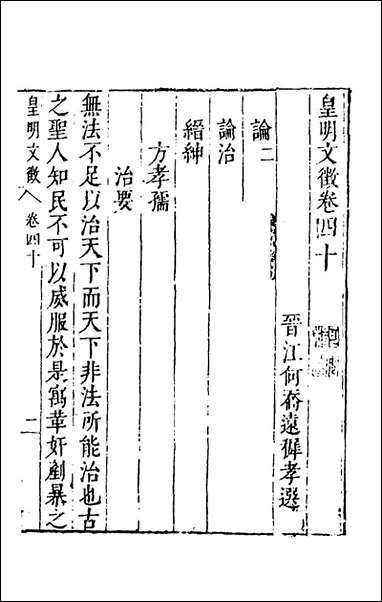 皇明文徵卷四十
晉江何喬遠穉孝選
論二
論治
縉紳
方孝孺
治要
無法不足以治天下而天下非法所能治也古
之聖人知民不可以威服於是寓革奸剷暴之
皇明文徵 卷四十 一